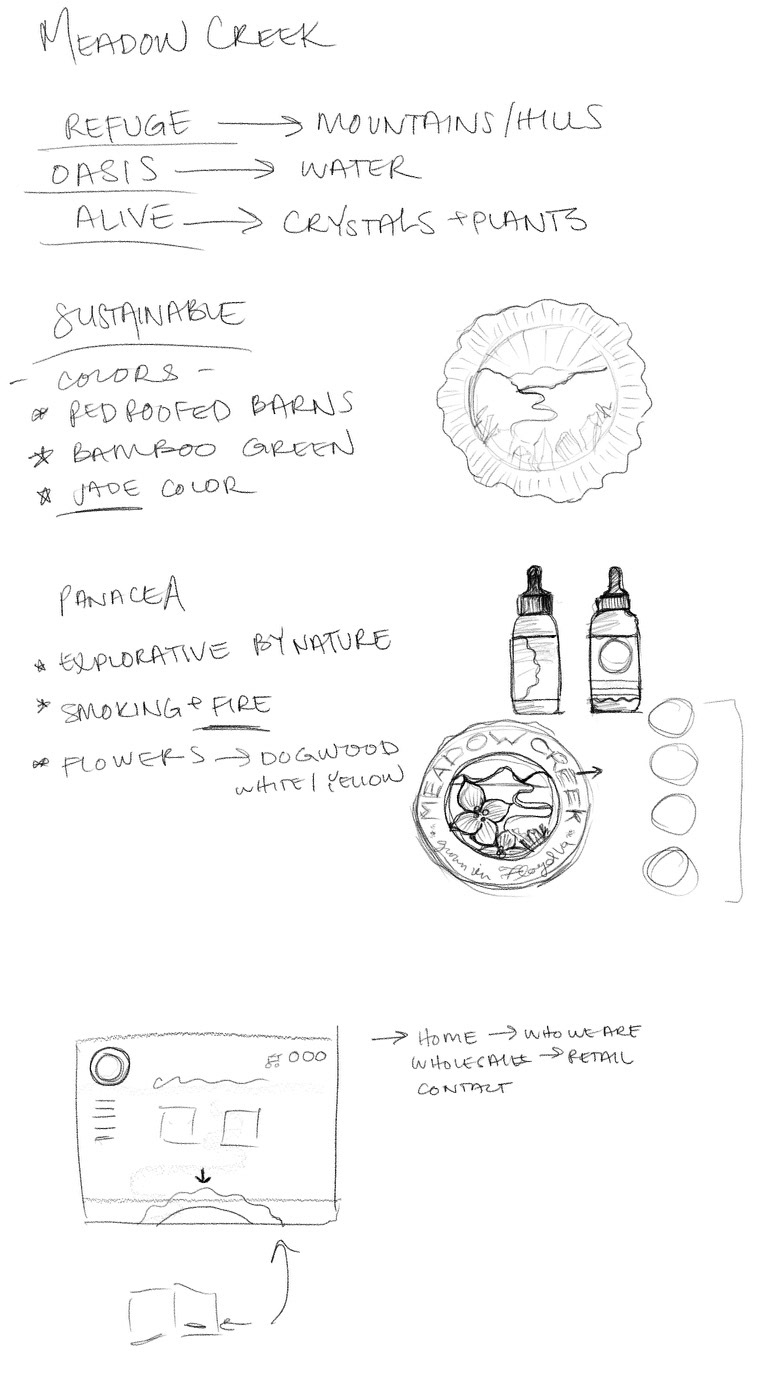 MEADOW CREEK
REFUGE → MOUNTAINS/HILLS
OASIS → WATER
ALIVE → CRYSTALS + PLANTS
SUSTAINABLE
- COLORS -
* RED ROOFED BARNS
* BAMBOO GREEN
* JADE COLOR
PANACEA
* EXPLORATIVE BY NATURE
* SMOKING + FIRE
* FLOWERS → DOGWOOD
WHITE / YELLOW
MEADOW CREEK
grown in Floyd VA
→ HOME → WHO WE ARE
WHOLESALE → RETAIL
CONTACT